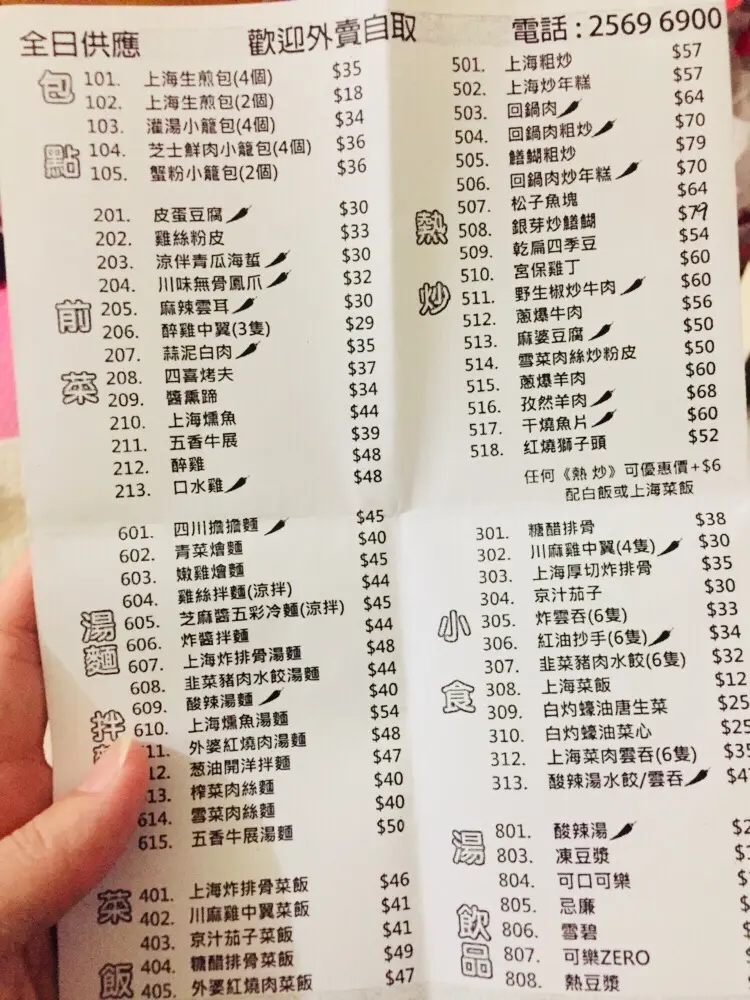 全日供應 歡迎外賣自取 電話:2569 6900
包點
101. 上海生煎包(4個) $35
102. 上海生煎包(2個) $18
103. 灌湯小籠包(4個) $34
104. 芝士鮮肉小籠包(4個) $36
105. 蟹粉小籠包(2個) $36
前菜
201. 皮蛋豆腐 $30
202. 雞絲粉皮 $33
203. 涼伴青瓜海蜇 $30
204. 川味無骨鳳爪 $32
205. 麻辣雲耳 $30
206. 醉雞中翼(3隻) $29
207. 蒜泥白肉 $35
208. 四喜烤夫 $37
209. 醬熏蹄 $34
210. 上海燻魚 $44
211. 五香牛展 $39
212. 醉雞 $48
213. 口水雞 $48
湯麵 拌
601. 四川擔擔麵 $45
602. 青菜燴麵 $40
603. 嫩雞燴麵 $45
604. 雞絲拌麵(涼拌) $44
605. 芝麻醬五彩冷麵(涼拌) $45
606. 炸醬拌麵 $44
607. 上海炸排骨湯麵 $48
608. 韭菜豬肉水餃湯麵 $44
609. 酸辣湯麵 $40
610. 上海燻魚湯麵 $54
11. 外婆紅燒肉湯麵 $48
12. 葱油開洋拌麵 $47
13. 榨菜肉絲麵 $40
614. 雪菜肉絲麵 $40
615. 五香牛展湯麵 $50
菜飯
401. 上海炸排骨菜飯 $46
402. 川麻雞中翼菜飯 $41
403. 京汁茄子菜飯 $41
404. 糖醋排骨菜飯 $49
405. 外婆紅燒肉菜飯 $47
熱炒
501. 上海粗炒 $57
502. 上海炒年糕 $57
503. 回鍋肉 $64
504. 回鍋肉粗炒 $70
505. 鱔鰗粗炒 $79
506. 回鍋肉炒年糕 $70
507. 松子魚塊 $64
508. 銀芽炒鱔鰗 $79
509. 乾扁四季豆 $54
510. 宮保雞丁 $60
511. 野生椒炒牛肉 $60
512. 蔥爆牛肉 $56
513. 麻婆豆腐 $50
514. 雪菜肉絲炒粉皮 $50
515. 蔥爆羊肉 $60
516. 孜然羊肉 $68
517. 干燒魚片 $60
518. 紅燒獅子頭 $52
任何《熱炒》可優惠價+$6
配白飯或上海菜飯
小食
301. 糖醋排骨 $38
302. 川麻雞中翼(4隻) $30
303. 上海厚切炸排骨 $35
304. 京汁茄子 $30
305. 炸雲吞(6隻) $33
306. 紅油抄手(6隻) $34
307. 韭菜豬肉水餃(6隻) $32
308. 上海菜飯 $12
309. 白灼蠔油唐生菜 $25
310. 白灼蠔油菜心 $25
312. 上海菜肉雲吞(6隻) $35
313. 酸辣湯水餃/雲吞 $4
湯 飲品
801. 酸辣湯 $2
803. 凍豆漿 $1
804. 可口可樂 $
805. 忌廉 $
806. 雪碧 $
807. 可樂ZERO
808. 熱豆漿